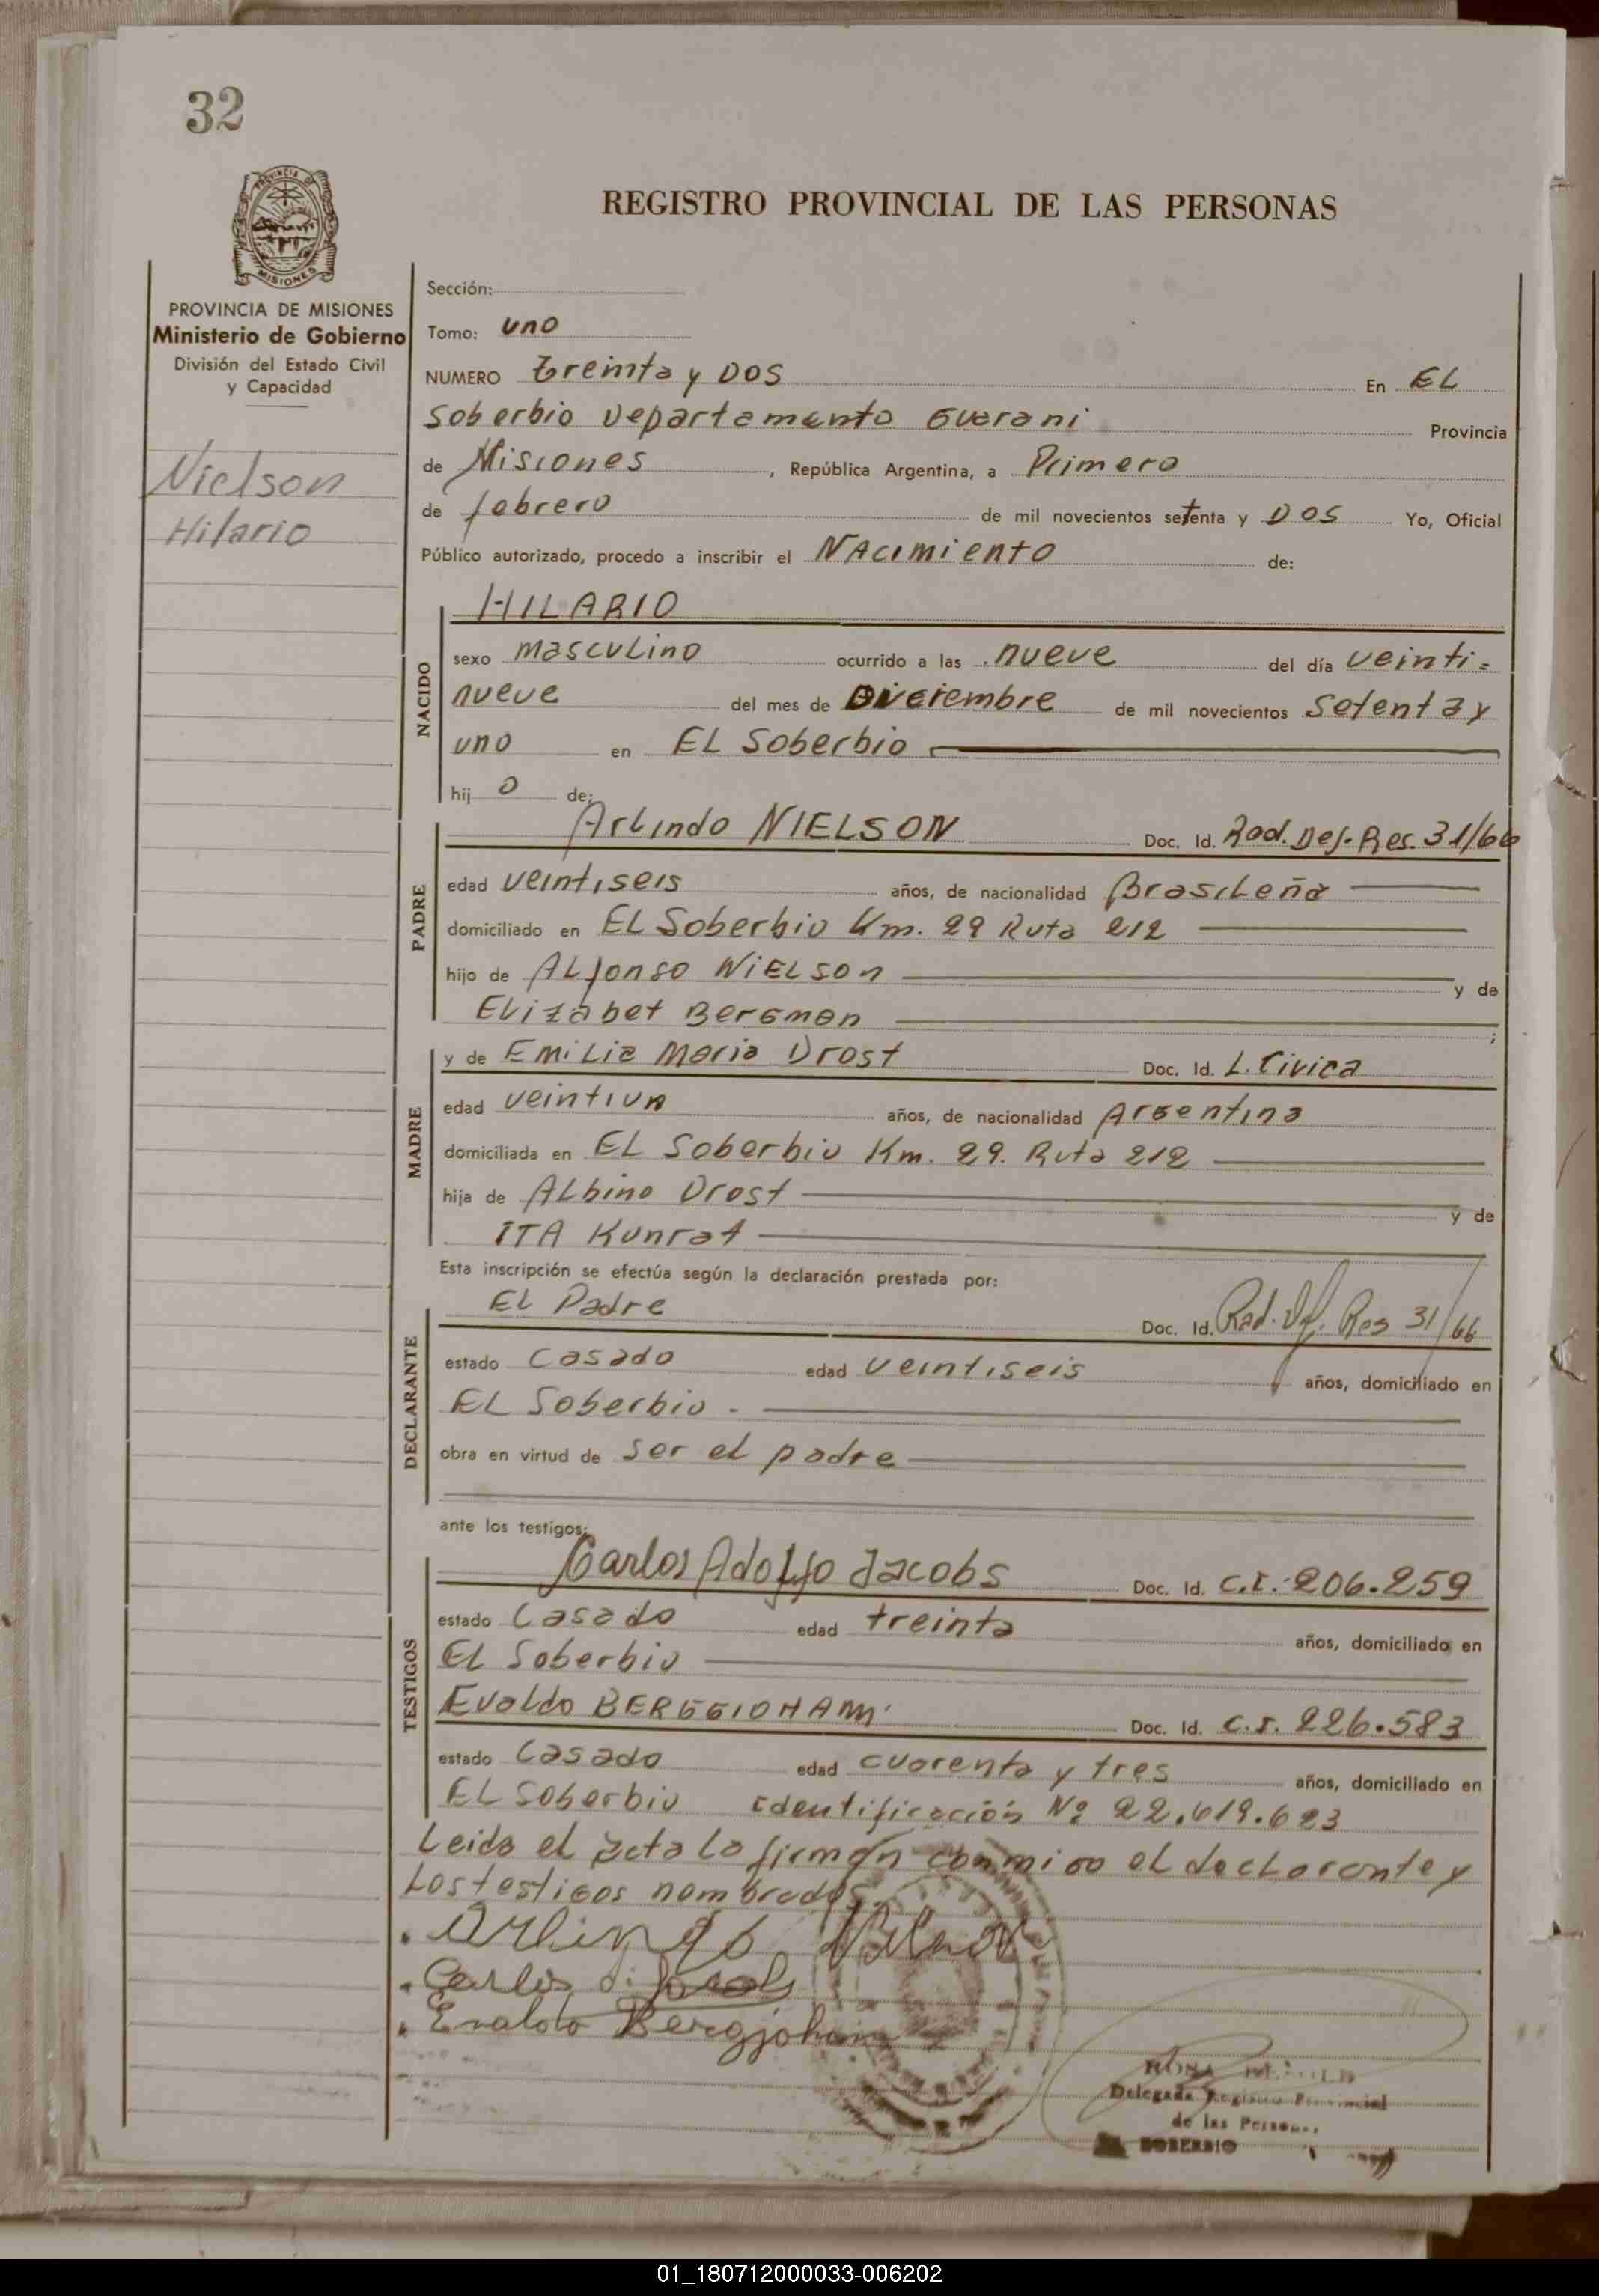 32
PROVINCIA DE
MISIONES
REGISTRO PROVINCIAL DE LAS PERSONAS
PROVINCIA DE MISIONES
Ministerio de Gobierno
División del Estado Civil
y Capacidad
Nielson
Hilario
Sección:
Tomo: uno
NUMERO treinta y DOS En EL
Soberbio Departamento Guarani Provincia
de Misiones, República Argentina, a Primero
de febrero de mil novecientos setenta y DOS Yo, Oficial
Público autorizado, procedo a inscribir el NACimiento de:
NACIDO
HILARIO
sexo masculino ocurrido a las nueve del día veinti=
nueve del mes de Diciembre de mil novecientos setenta y
uno en EL Soberbio
hij o de:
PADRE
Arlindo NIELSON Doc. Id. Rad. Def. Res. 31/66
edad veintiseis años, de nacionalidad Brasileña
domiciliado en EL Soberbio Km. 29 Ruta 212
hijo de ALfonso NiELSon y de
Elizabet Bergman ;
MADRE
y de Emilia Maria Drost Doc. Id. L. Civica
edad veintiun años, de nacionalidad Argentina
domiciliada en EL Soberbio Km. 29. Ruta 212
hija de ALbino Drost y de
ITA Kunrat
Esta inscripción se efectúa según la declaración prestada por:
DECLARANTE
El Padre Doc. Id. Rad. Df. Res 31/66
estado Casado edad veintiseis años, domiciliado en
EL Soberbio -
obra en virtud de ser el padre
ante los testigos:
TESTIGOS
Carlos Adolfo Jacobs Doc. Id. C.I. 206.259
estado Casado edad treinta años, domiciliado en
EL Soberbio
Evaldo BERGGIOHAM Doc. Id. C.I. 226.583
estado Casado edad cuarenta y tres años, domiciliado en
EL Soberbio Identificación Nº 22.619.623
Leida el acta la firman conmigo el declarante y
Los testigos nombrados.
Arlindo
Carlos A. Jacobs
Evaldo Bergjohann
Delegada Registro Provincial
de las Personas
SOBERBIO
01_180712000033-006202